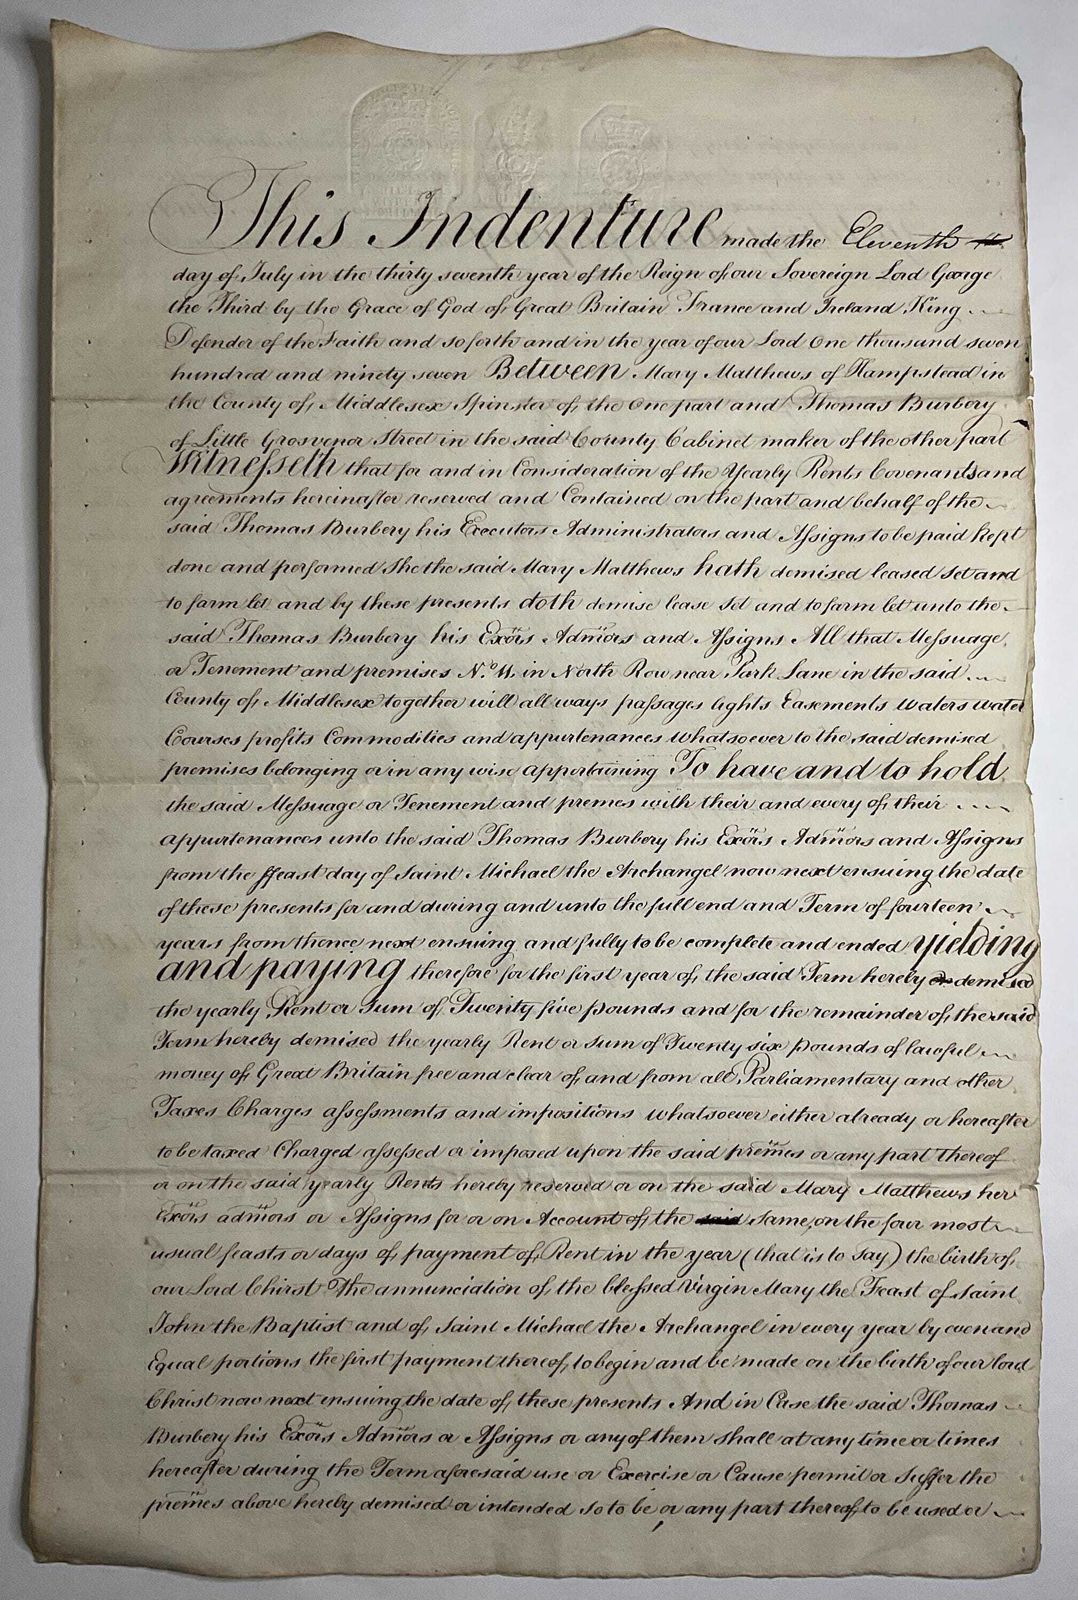 This Indenture made the Eleventh
day of July in the thirty seventh year of the Reign of our Sovereign Lord George
the Third by the Grace of God of Great Britain France and Ireland King
Defender of the Faith and so forth and in the year of our Lord One thousand seven
hundred and ninety seven Between Mary Matthews of Hampstead in
the County of Middlesex Spinster of the one part and Thomas Burbery
of Little Grosvenor Street in the said County Cabinet maker of the other part
Witnesseth that for and in Consideration of the Yearly Rents Covenants and
agreements hereinafter reserved and Contained on the part and behalf of the
said Thomas Burbery his Executors Administrators and Assigns to be paid kept
done and performed She the said Mary Matthews hath demised leased set and
to farm let and by these presents doth demise lease set and to farm let unto the
said Thomas Burbery his Exörs Admörs and Assigns All that Messuage
or Tenement and premises No. in North Row near Park Lane in the said
County of Middlesex together will all ways passages lights Easements Waters water
Courses profits Commodities and appurtenances whatsoever to the said demised
premises belonging or in any wise appertaining To have and to hold
the said Messuage or Tenement and premes with their and every of their
appurtenances unto the said Thomas Burbery his Exörs Admörs and Assigns
from the ffeast day of Saint Michael the Archangel now next ensuing the date
of these presents for and during and unto the full end and Term of fourteen
years from thence next ensuing and fully to be complete and ended yielding
and paying therefore for the first year of the said Term hereby demised
the yearly Rent or Sum of Twenty five pounds and for the remainder of the said
Term hereby demised the yearly Rent or sum of Twenty six pounds of lawful
money of Great Britain free and clear of and from all Parliamentary and other
Taxes Charges assessments and impositions whatsoever either already or hereafter
to be taxed Charged assessed or imposed upon the said premës or any part thereof
or on the said yearly Rents hereby reserved or on the said Mary Matthews her
Exörs admörs or Assigns for or on Account of the said same, on the four most
usual feasts or days of payment of Rent in the year (that is to say) the birth of
our Lord Chirst The annunciation of the blessed Virgin Mary the Feast of Saint
John the Baptist and of Saint Michael the Archangel in every year by even and
Equal portions the first payment thereof to begin and be made on the birth of our lord
Christ now next ensuing the date of these presents And in Case the said Thomas
Burbery his Exörs Admörs or Assigns or any of them shall at any time or times
hereafter during the Term aforesaid use or Exercise or Cause permit or suffer the
premës above hereby demised or intended so to be or any part thereof to be used or